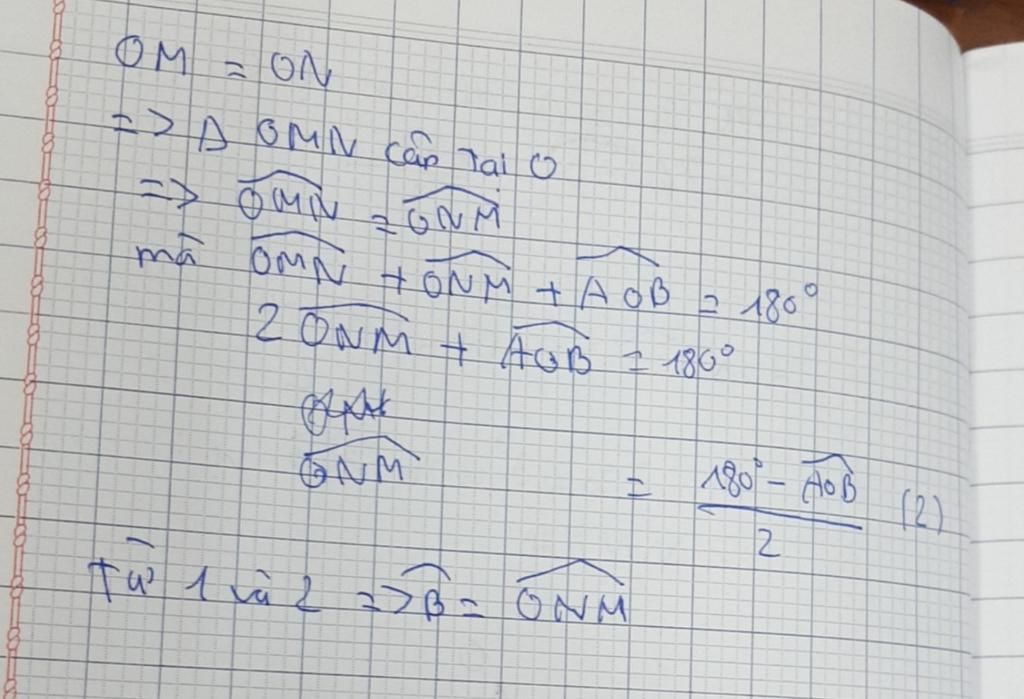 OM = ON
=> Δ OMN cân tại O
=> \widehat{OMN} = \widehat{ONM}
mà \widehat{OMN} + \widehat{ONM} + \widehat{AOB} = 180°
2 \widehat{ONM} + \widehat{AOB} = 180°
\widehat{ONM} = \frac{180° - \widehat{AOB}}{2} (2)
từ 1 và 2 => \widehat{B} = \widehat{ONM}